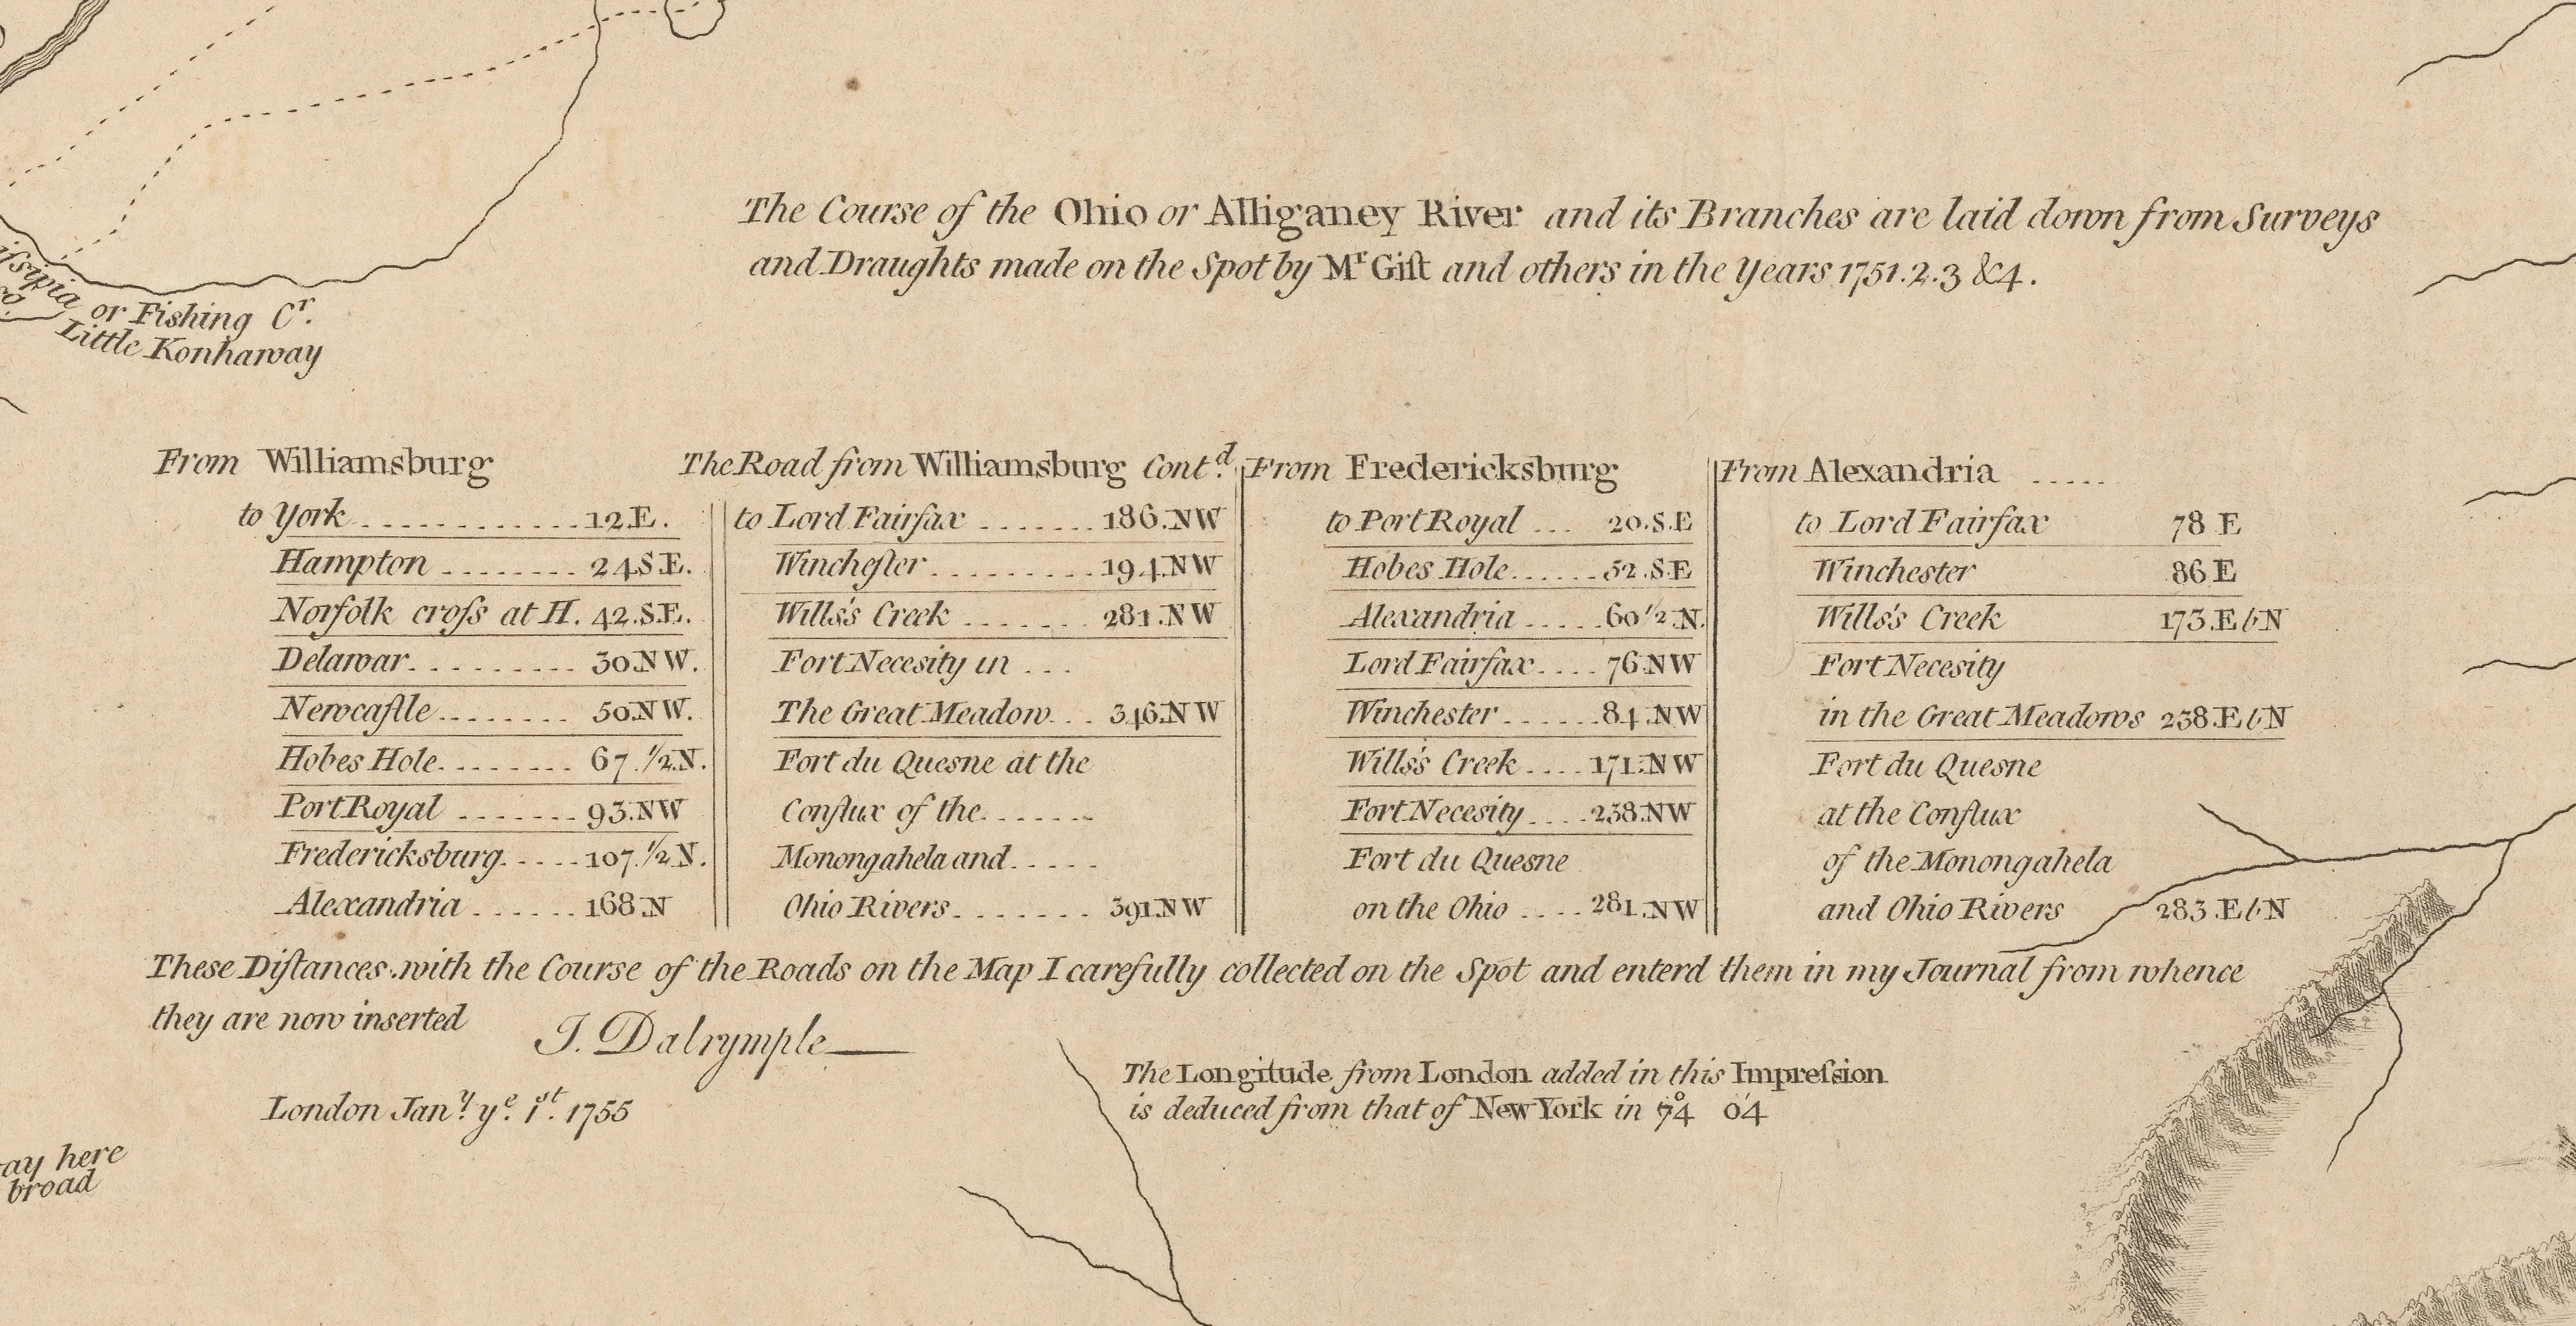 The Course of the Ohio or Alliganey River and its Branches are laid down from Surveys
and Draughts made on the Spot by Mr Gist and others in the Years 1751.2.3 &4.
or Fishing Cr.
Little Konhaway
From Williamsburg
to York ............ 12 E.
Hampton ........ 24 S.E.
Norfolk cross at H. 42. S.E.
Delawar. ......... 30. N W.
Newcastle ........ 50. N W.
Hobes Hole. ....... 67. 1/2. N.
Port Royal ....... 93. N W
Fredericksburg. .... 107. 1/2 N.
Alexandria ...... 168 N
The Road from Williamsburg Contd.
to Lord Fairfax ....... 186. N W
Winchester .......... 194. N W
Wills's Creek ....... 281. N W
Fort Necesity in ...
The Great Meadow. .. 346. N W
Fort du Quesne at the
Conflux of the. ......
Monongahela and. ....
Ohio Rivers. ....... 391. N W
From Fredericksburg
to Port Royal ... 20. S.E
Hobes Hole. ..... 52. S.E
Alexandria ..... 60 1/2. N.
Lord Fairfax. ... 76. N W
Winchester ...... 84. N W
Wills's Creek .... 171. N W
Fort Necesity .... 238. N W
Fort du Quesne
on the Ohio .... 281. N W
From Alexandria .....
to Lord Fairfax 78 E
Winchester 86 E
Wills's Creek 173. E b N
Fort Necesity
in the Great Meadows 238. E b N
Fort du Quesne
at the Conflux
of the Monongahela
and Ohio Rivers 283. E b N
These Distances with the Course of the Roads on the Map I carefully collected on the Spot and enterd them in my Journal from whence
they are now inserted
J. Dalrymple
London Jany. ye. 1st. 1755
The Longitude from London added in this Impression
is deduced from that of New York in 74° 04'
ay here
broad